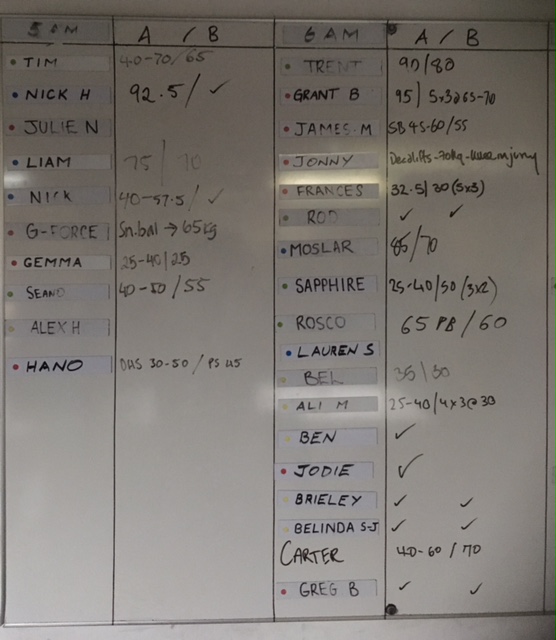 5 AM A / B
TIM 40-70/65
NICK H 92.5/ ✓
JULIE N
LIAM 75 / 70
NICK 40-57.5/ ✓
G-FORCE Sn.bal → 65kg
GEMMA 25-40/25
SEANO 40-50/55
ALEX H
HANO OHS 30-50 / PS 45
6 AM A / B
TRENT 90/80
GRANT B 95/ 5x3@65-70
JAMES. M SB 45-60/55
JONNY 70kg
FRANCES 32.5/30 (5x3)
ROD ✓ ✓
MOSLAR 85/70
SAPPHIRE 25-40/50 (3x2)
ROSCO 65 PB / 60
LAUREN S
BEL 35/30
ALI M 25-40/4x3@30
BEN ✓
JODIE ✓
BRIELEY ✓ ✓
BELINDA S-J ✓ ✓
CARTER 40-60 / 70
GREG B ✓ ✓